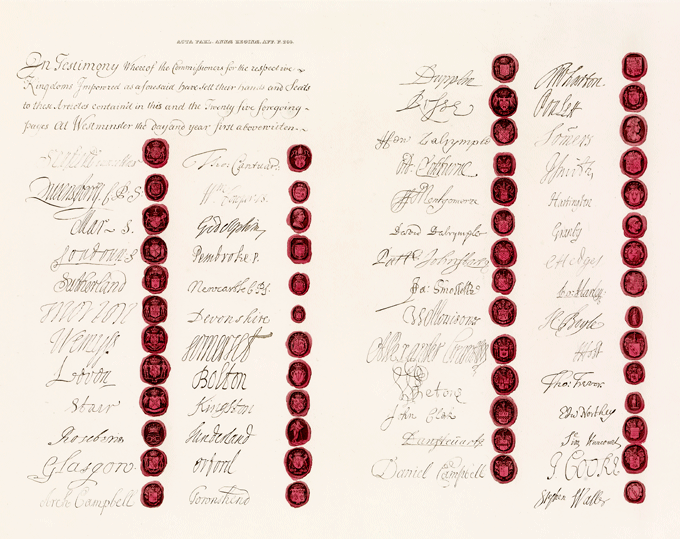 ACTA PARL. ANNÆ REGINÆ, APP. P. 205.
In Testimony Whereof the Commissioners for the respective
Kingdoms Impowred as aforesaid have sett their hands and Seals
to these Articles contained in this and the Twenty five foregoing
pages At Westminster the day and year first abovewritten
Queensberry C.P.S
Mar S.
Loudoun S
Sutherland
Morton
Wemyss
Leven
Stair
Roseberie
Glasgow
Arch Campbell
Tho: Cantuar
Godolphin
Pembroke P.
Newcastle C.P.S.
Devonshire
Somerset
Bolton
Kingston
Sunderland
Orford
Townshend
Dupplin
Hew Dalrymple
Ad. Cockburne
Montgomerie
David Dalrymple
Patt: Johnston
Ja: Smollett
W Morisone
Alexander Grant
John Clerk
Daniel Campbell
Wharton
Poulett
Somers
J Smith
Hartington
Granby
C Hedges
Ro: Harley
H Boyle
J Holt
Tho: Trevor
Edw Northey
Sim Harcourt
J. COOKE
Stephen Waller